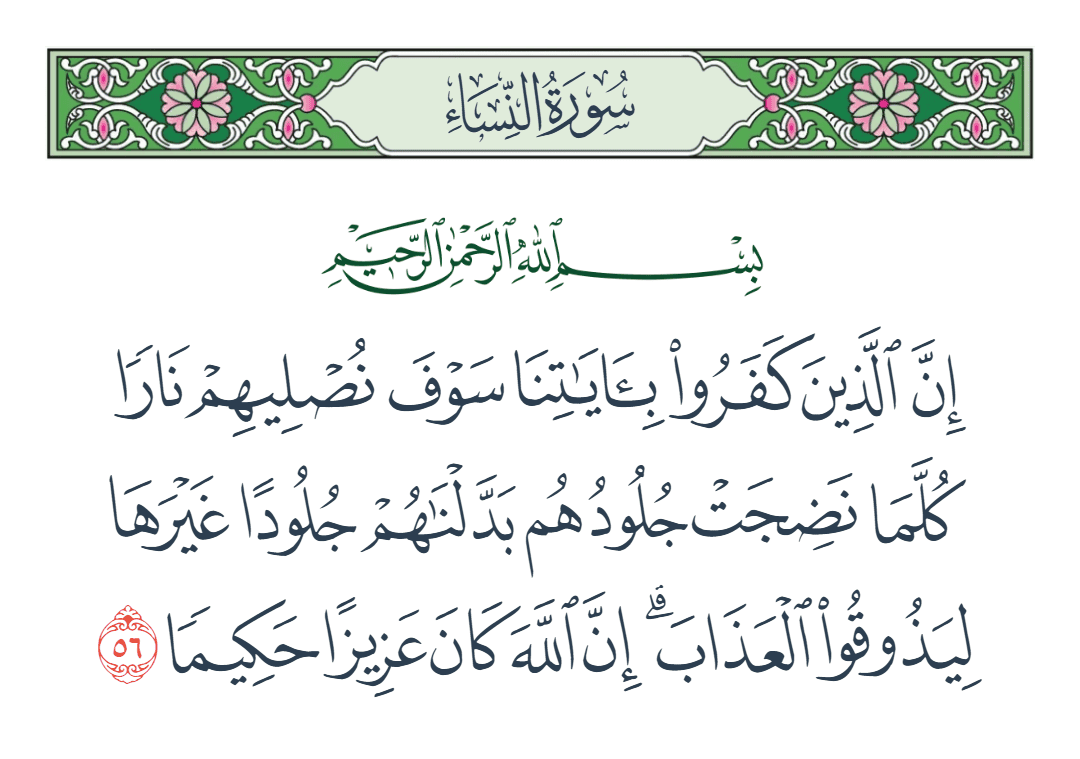 سُورَةُ النِّسَاءِ
بِسْمِ ٱللَّهِ ٱلرَّحْمَٰنِ ٱلرَّحِيمِ
إِنَّ ٱلَّذِينَ كَفَرُوا۟ بِـَٔايَـٰتِنَا سَوْفَ نُصْلِيهِمْ نَارًا
كُلَّمَا نَضِجَتْ جُلُودُهُم بَدَّلْنَـٰهُمْ جُلُودًا غَيْرَهَا
لِيَذُوقُوا۟ ٱلْعَذَابَ ۗ إِنَّ ٱللَّهَ كَانَ عَزِيزًا حَكِيمًا ٥٦